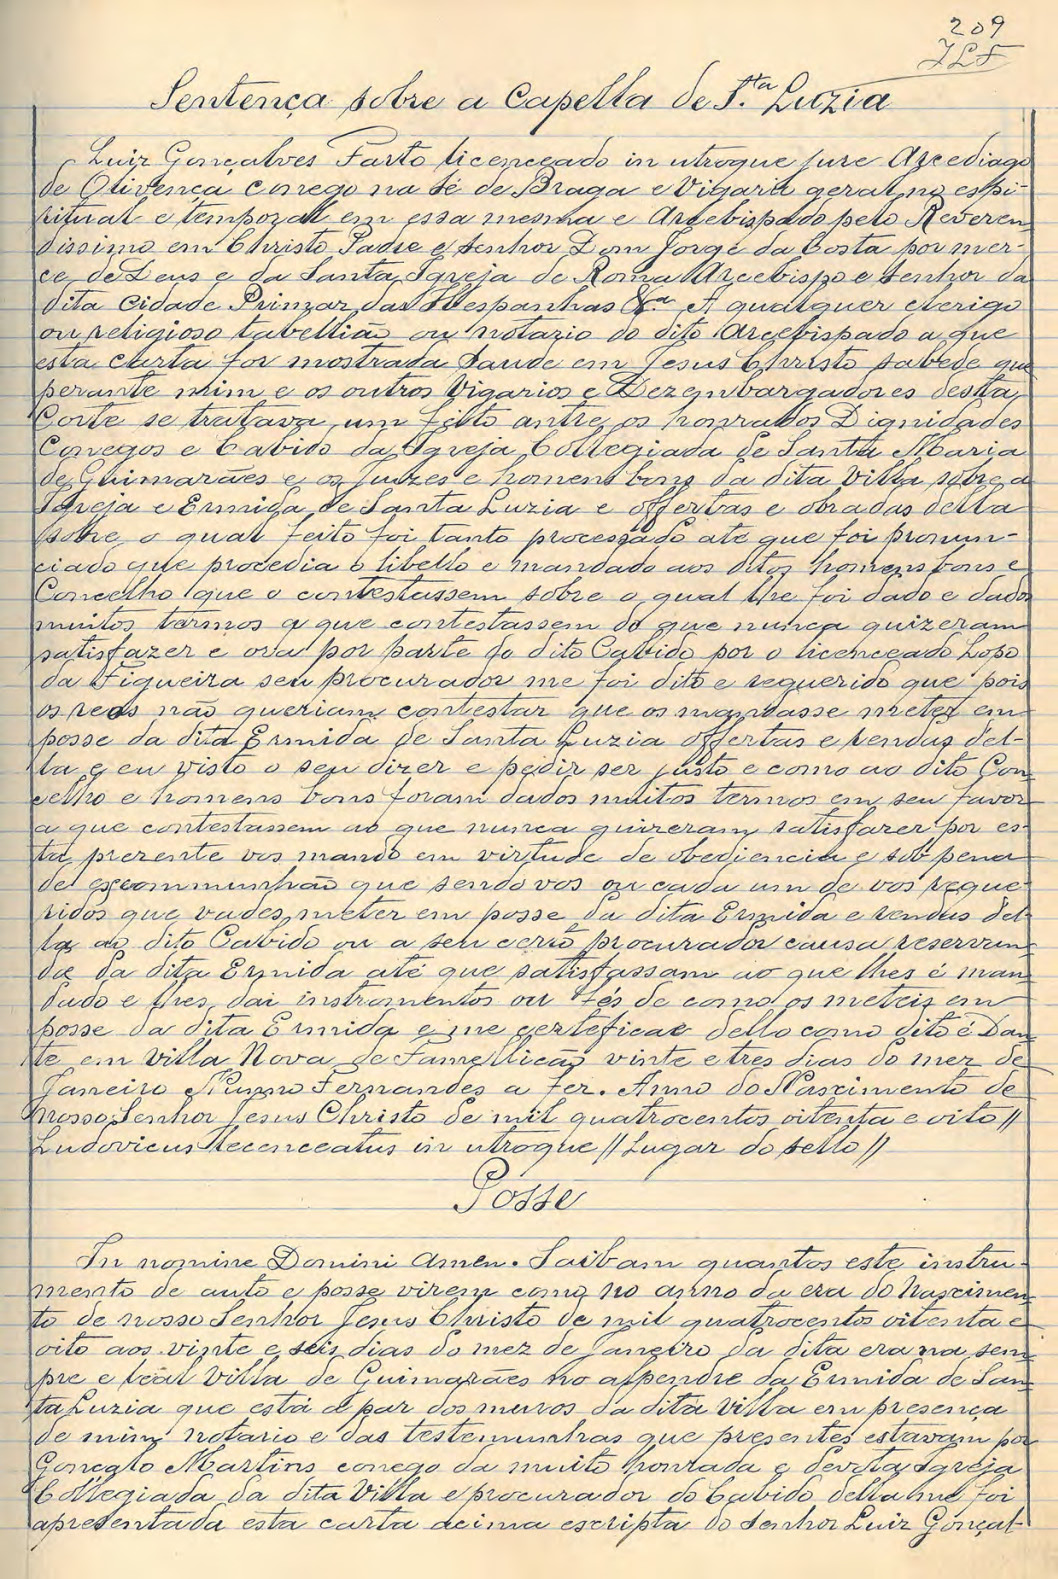 209
JLF
Sentença sobre a Capella de S.ta Luzia
Luiz Gonçalves Farto licenceado in utroque jure Arcediago
de Olivença conego na Sé de Braga e Vigario geral no espi-
ritual e temporal em essa mesma e Arcebispado pelo Reveren
dissimo em Christo Padre e Senhor Dom Jorge da Costa por mer-
ce de Deus e da Santa Igreja de Roma Arcebispo e Senhor da
dita Cidade Prinzar das Hespanhas &.a A qualquer clerigo
ou religioso tabellião ou notario do dito Arcebispado a que
esta carta for mostrada Saude em Jesus Christo sabede que
perante mim e os outros Vigarios e Dezembargadores desta
Corte se tratava um feito antre os honrados Dignidades
Conegos e Cabido da Igreja Collegiada de Santa Maria
de Guimarães e os Juizes e homens bons da dita Villa sobre a
Igreja e Ermida de Santa Luzia e offertas e obradas della
sobre o qual feito foi tanto processado até que foi pronun-
ciado que procedia o libello e mandado aos ditos homens bons e
Concelho que o contestassem sobre o qual lhe foi dado e dados
muitos termos a que contestassem do que nunca quizeram
satisfazer e ora por parte do dito Cabido por o licenceado Lopo
da Figueira seu procurador me foi dito e requerido que pois
os reos não queriam contestar que os mandasse meter em
posse da dita Ermida de Santa Luzia offertas e rendas del-
la e eu visto o seu dizer e pedir ser justo e como ao dito Con
celho e homens bons foram dados muitos termos em seu favor
a que contestassem ao que nunca quizeram satisfazer por es-
ta prezente vos mando em virtude de obediencia e sob pena
de escommunhão que sendo vos ou cada um de vos reque-
ridos que vades meter em posse da dita Ermida e rendas del-
la ao dito Cabido ou a seu certo procurador causa reservan-
da da dita Ermida até que satisfassam ao que lhes é man
dado e lhes dai instromentos ou fés de como os meteis em
posse da dita Ermida e me certeficae dello como dito é Dan-
te em Villa Nova de Famellicão vinte e tres dias do mez de
Janeiro Nuno Fernandes a fez. Anno do Nascimento de
Nosso Senhor Jesus Christo de mil quatrocentos oitenta e oito //
Ludovicus Lecenceatus in utroque // Lugar do sello //
Posse
In nomine Domini Amen. Saibam quantos este instru-
mento de auto e posse virem como no anno da era do Nascimen-
to de nosso Senhor Jesus Christo de mil quatrocentos oitenta e
oito aos vinte e seis dias do mez de Janeiro da dita era na sem-
pre e leal Villa de Guimarães no alpendre da Ermida de San-
ta Luzia que está a par dos muros da dita Villa em presença
de mim notario e das testemunhas que presentes estavam por
Gonçalo Martins conego da muito honrada e devota Igreja
Collegiada da dita Villa e procurador do Cabido della me foi
apresentada esta carta acima escripta do Senhor Luiz Gonçal-